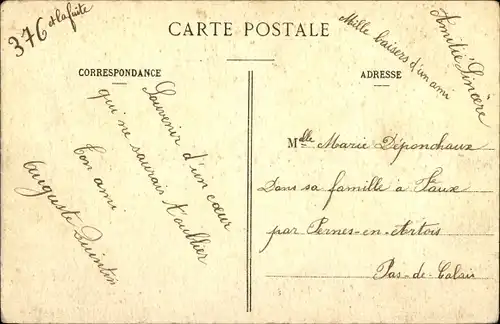 376 et la fuite
CARTE POSTALE
Mille baisers d'un ami
Amitié Sincère
CORRESPONDANCE
ADRESSE
Souvenir d'un cœur
qui ne saurais t'oublier
Ton ami
Auguste Quintin
Melle Marie Déponchaux
Dans sa famille à Faux
par Pernes-en-Artois
Pas-de-Calais